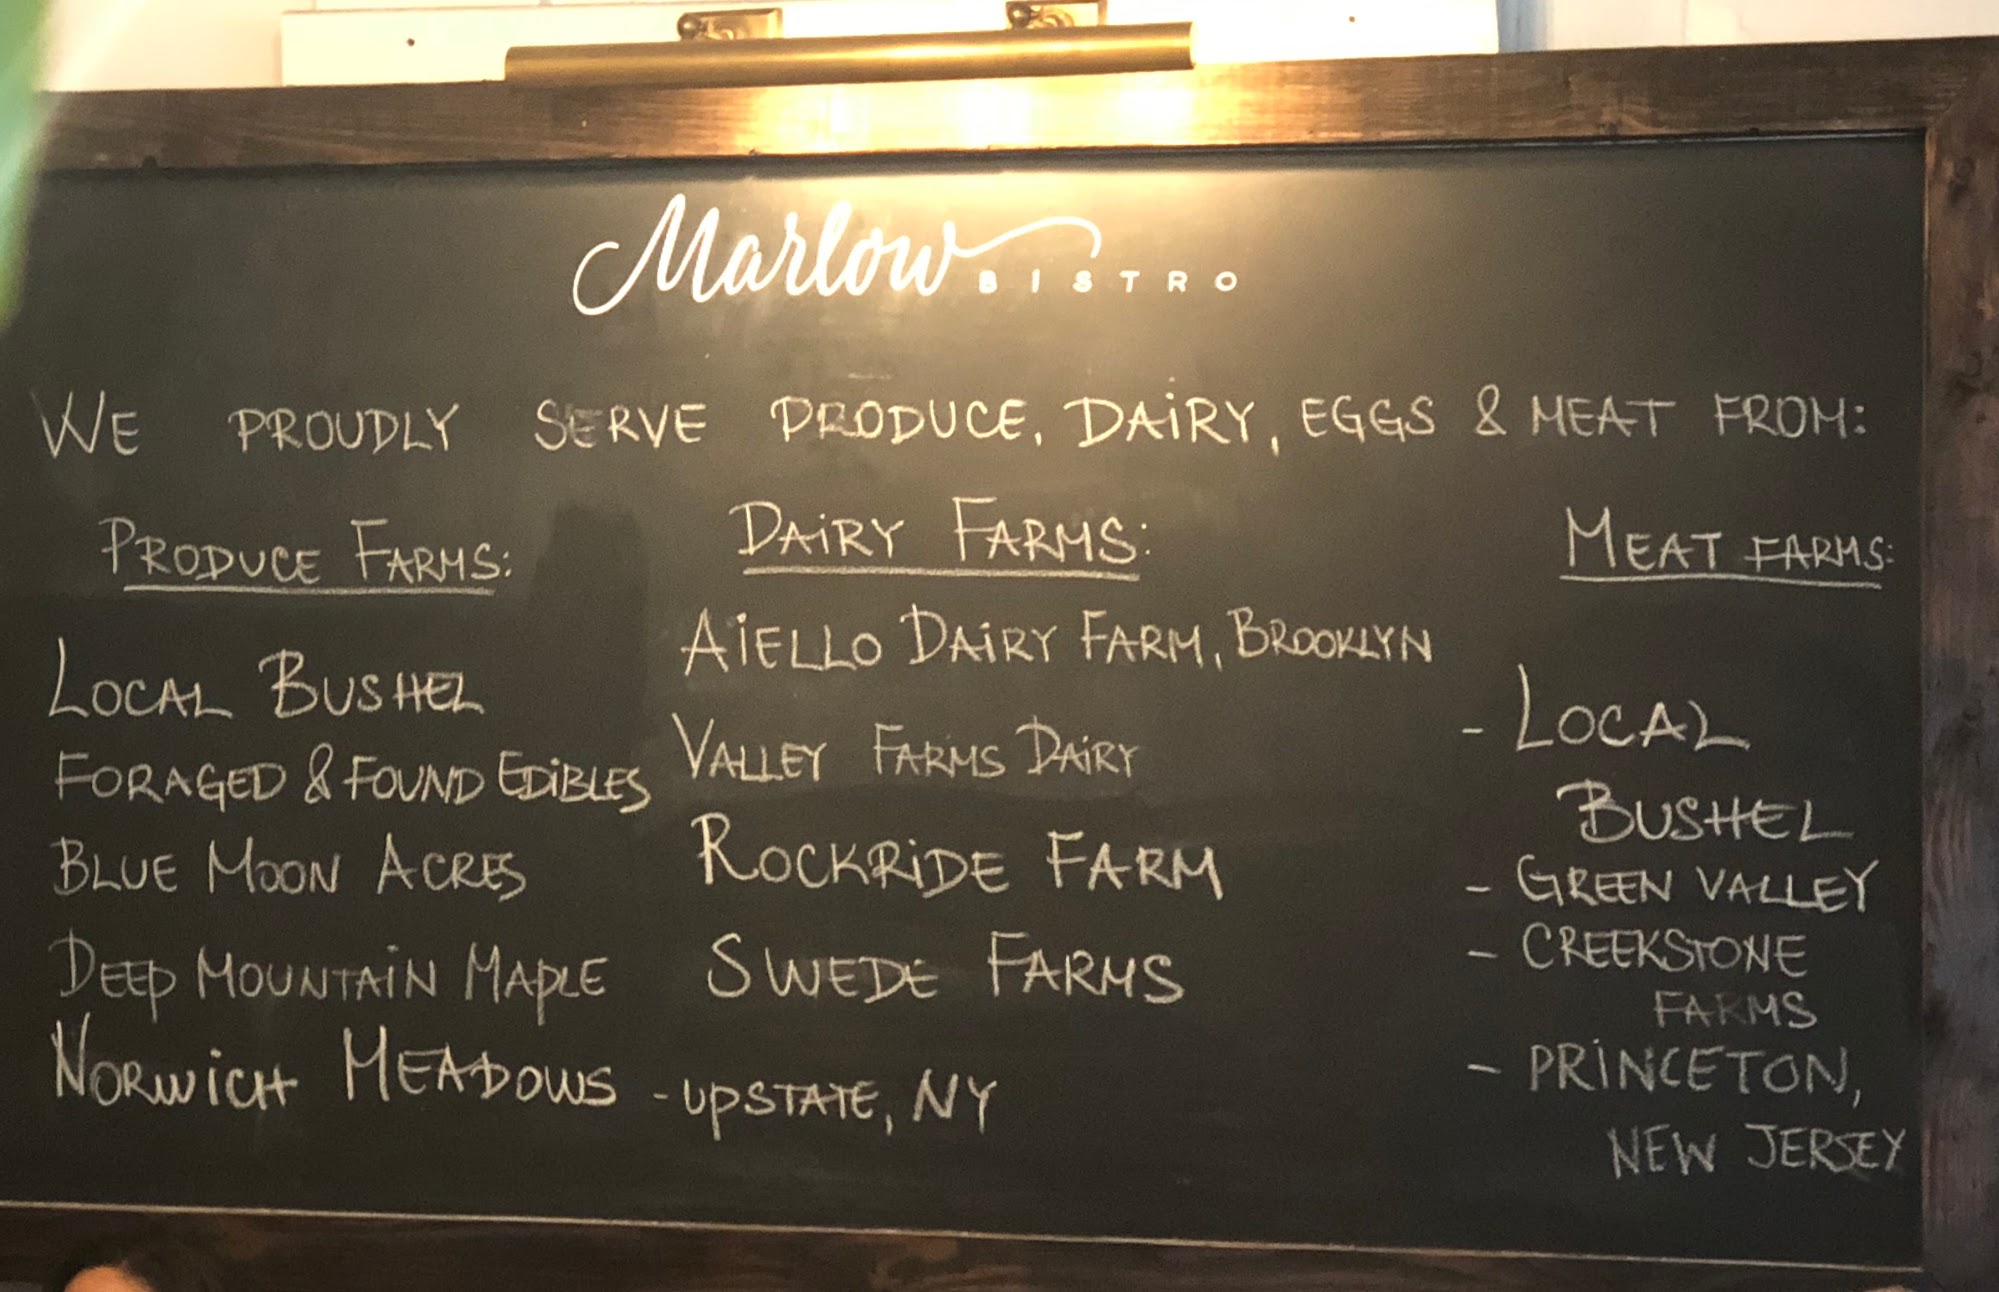 Marlow BISTRO
WE PROUDLY SERVE PRODUCE, DAIRY, EGGS & MEAT FROM:
PRODUCE FARMS:
LOCAL BUSHEL
FORAGED & FOUND EDIBLES
BLUE MOON ACRES
DEEP MOUNTAIN MAPLE
NORWICH MEADOWS - UPSTATE, NY
DAIRY FARMS:
AIELLO DAIRY FARM, BROOKLYN
VALLEY FARMS DAIRY
ROCKRIDE FARM
SWEDE FARMS
MEAT FARMS:
- LOCAL
BUSHEL
- GREEN VALLEY
- CREEKSTONE
FARMS
- PRINCETON,
NEW JERSEY